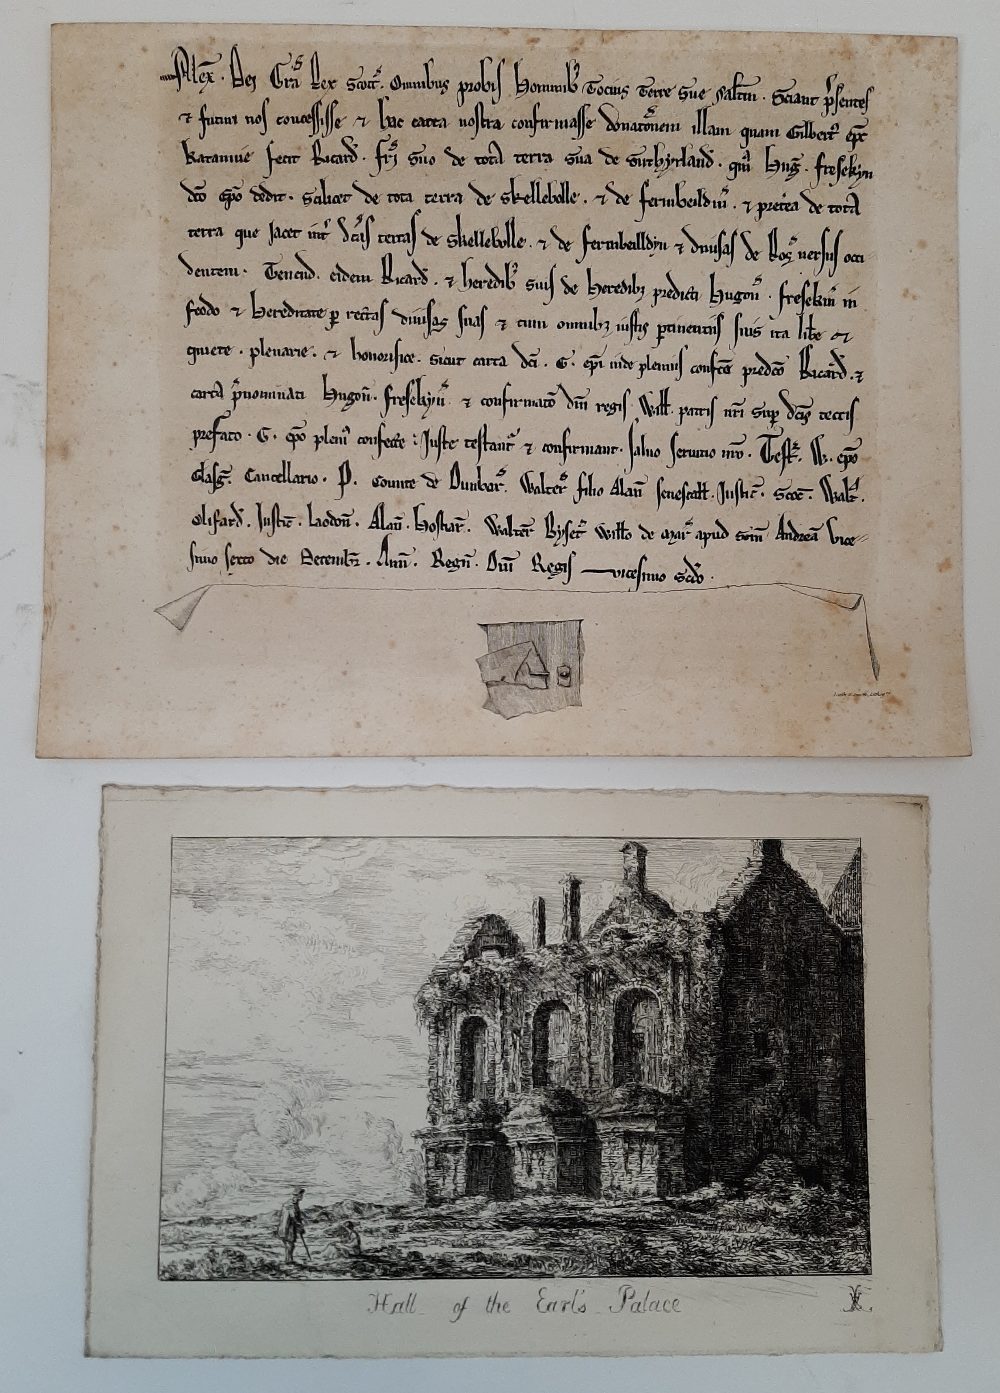 Alex̄. Dei Grā Rex Scott̄. Omnibus probis Hominib; Tocius Terre Sue Saltm̄. Sciant p̄sentes
& futuri nos concessisse & hac carta nostra confirmasse donatōnem illam quam Gilbert̄ epc
Katannie fecit Ricard̄. frī suo de tota terra sua de Suthyrland̄. qm̄ Hug̅. freskyn
dc̄o epō dedit. Scilicet de tota terra de Skellebolle. & de ferinbeildin̄. & pret̄ea de tota
terra que Jacet int̄ dc̄as terras de Skellebolle. & de fernbeilldyn & diuisas de Ros̄ uersus occi-
dentem. Tenend̄. eidem Ricard̄. & heredib; suis de Heredib; predicti Hugon̄. fresekin̄ in
feodo & Hereditate p̱ rectas diuisas suas & cum omnib; iustis p̱tinentiis suis ita lib̄e &
quiete. plenarie. & honorifice. sicut carta dc̄i. G. ep̄i inde plenius confec̄ta predc̄o Ricard̄. &
carta p̄nominati Hugon̄. fresekyn̄ & confirmatō dn̄i regis Will̄. patris nr̄i sup̱ dc̄is terris
prefato. G. ep̄o pleni᷒ confecte: Juste testant̄ & confirmant. saluo seruitio nr̄o. Test̄. W. ep̄o
Glasḡ. Cancellario. P. Comite de Dunbar̄. Walter̄ filio Alan̄ senescall̄. Justic̄. Scoc̄. Walt̄.
Olifard̄. Justic̄. Laodon̄. Alan̄. Hostiar̄. Walter̄ Byset̄ Will̄o de apud Andreā Vice-
simo sexto die Decembr̄. Ann̄. Regn̄. Dn̄i Regis vicesimo Scd̄o.
Hall of the Earl's Palace